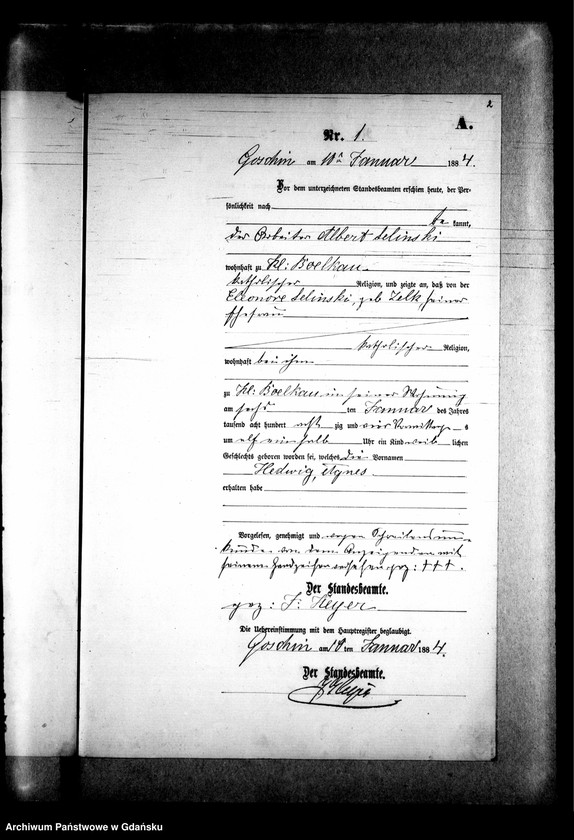 2
A.
Nr. 1.
Goschin am 10ten Januar 1884.
Vor dem unterzeichneten Standesbeamten erschien heute, der Per-
sönlichkeit nach
be kannt,
der Arbeiter Albert Selinski
wohnhaft zu Kl: Boelkau
katholischer Religion, und zeigte an, daß von der
Eleonore Selinski, geb Zelk, seiner
Ehefrau
katholischer Religion,
wohnhaft bei ihm
zu Kl: Boelkau in seiner Wohnung
am sechs ten Januar des Jahres
tausend acht hundert acht zig und vier Vormittag s
um elf einhalb Uhr ein Kind weib lichen
Geschlechts geboren worden sei, welches die Vornamen
Hedwig, Agnes
erhalten habe
Vorgelesen, genehmigt und wegen Schreibensun-
kunde von dem Anzeigenden mit
seinem Handzeichen versehen gez: +++.
Der Standesbeamte.
gez: F. Heyer
Die Uebereinstimmung mit dem Hauptregister beglaubigt.
Goschin am 10 ten Januar 1884.
Der Standesbeamte.
Heyer
Archiwum Państwowe w Gdańsku